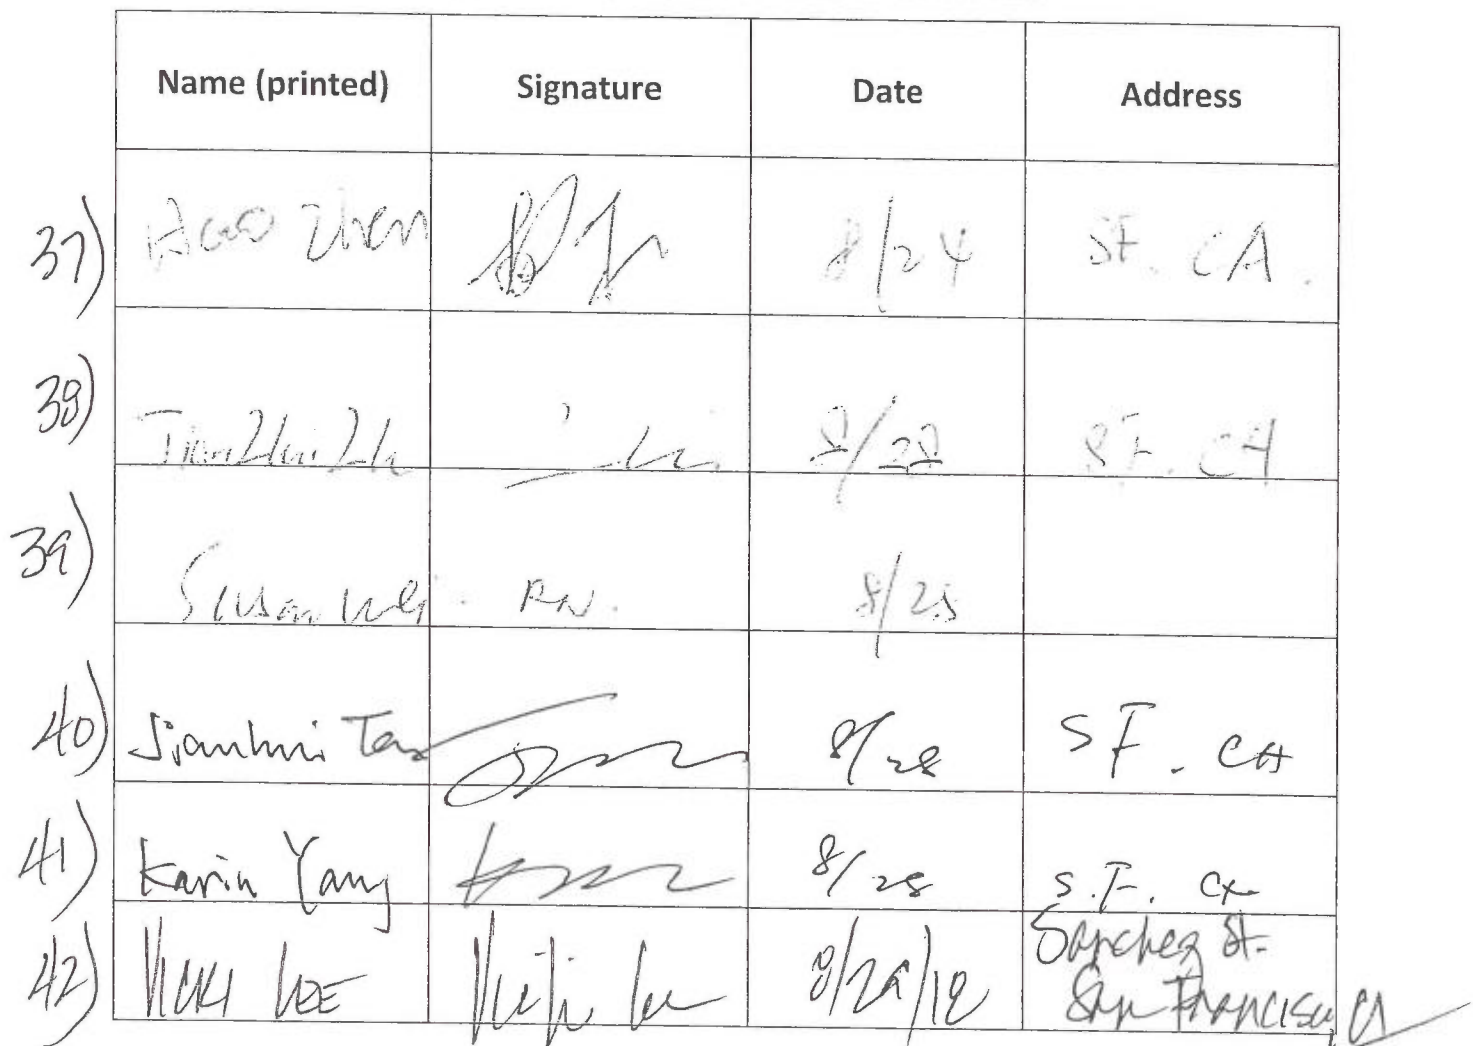 Name (printed) Signature Date Address
37) Hao Zhen 8/24 SF. CA.
38) 8/28 SF. CA
39) Susan RN. 8/28
40) Jianhui 8/28 SF. CA
41) Karin Yang 8/28 S.F. CA
42) Vicki LEE Vicki Lee 8/29/12 Sanchez St.
San Francisco, CA